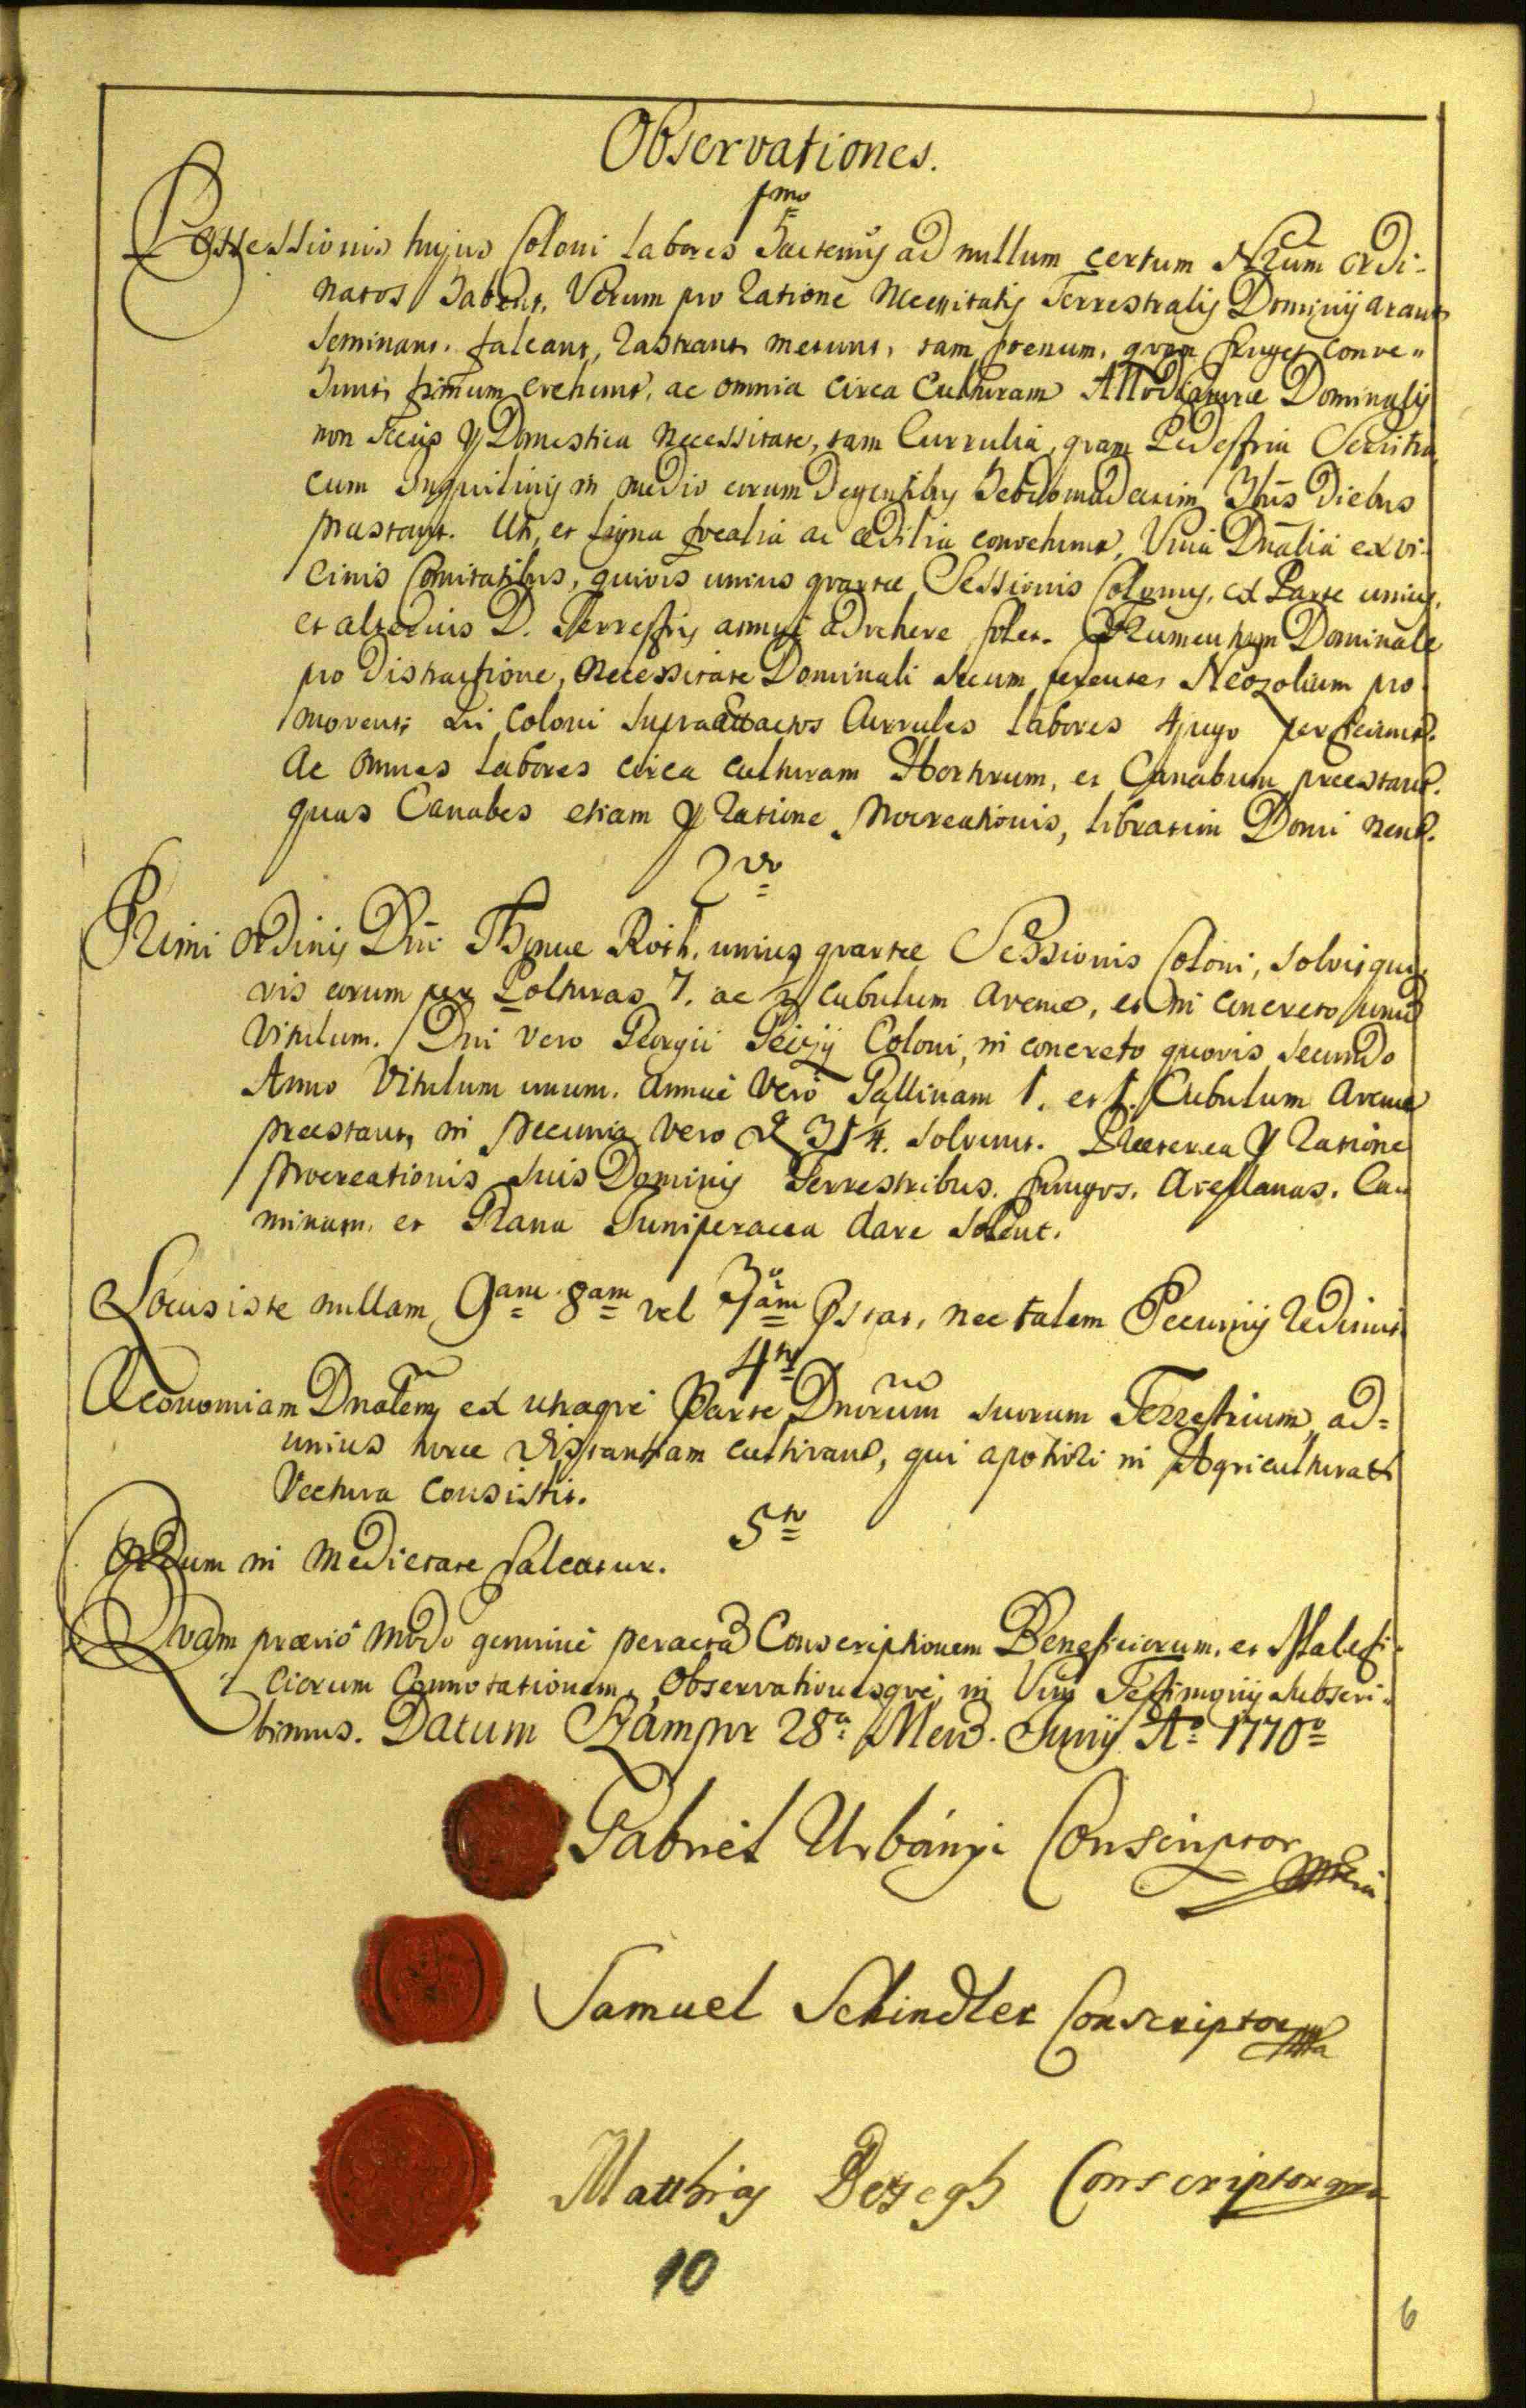 Observationes.
1mo
Possessionis hujus Coloni Labores hactenus ad nullum certum Nrum ordi-
natos habent. Verum pro Ratione Necessitatis Terrestralis Dominij arant
Seminant. falcant, Rastrant metunt, tam foenum, quam fruges conve-
hunt, fimum evehunt, ac omnia circa Culturam Allodiaturae Dominalis
non secus Domestica Necessitate, tam Currulia, quam Pedestria Servitia,
cum Inquilinis in medio eorum degentibus hebdomadatim 3bus diebus
praestant. Uti, et Ligna focalia ac aedilia convehunt, Vina Dnalia ex vi-
cinis Comitatibus, quivis unius quartae Sessionis Colonus, ex Parte unius,
et alterius D. Terrestris annue advehere solet. Frumentum Dominale
pro distractione, Necessitate Dominali secum ferente, Neozolium pro-
movent; Hi Coloni Supra Currules Labores 4 jugo perficiunt.
Ac omnes Labores circa culturam Hortorum, et Canabum praestant.
quas Canabes etiam Ratione Procreationis, libratim Domi nent.
2do
Primi Ordinis Dni Roth. unius quartae Sessionis Coloni, solvit qui-
vis eorum per Polturas 7. ac ½ Cubulum Avenae, et in concreto unum
Vitulum. Dni vero Georgii Coloni, in concreto quovis secundo
Anno Vitulum unum. annue Vero Gallinam 1. et 1. Cubulum Avenae
praestant, in Pecunia vero 31¼. solvunt. Praeterea Ratione
Procreationis suis Dominis Terrestribus. fungos. Avellanas. Cu-
minum. et Grana Juniperacea dare solent.
3o
Locus iste nullam 9am 8am vel 7am Pstat, nec talem Pecuniis Redimit.
4to
Aeconomiam Dnalem ex utraque Parte Dnorum suorum Terrestrium, ad-
unius horae distantiam cultivant, qui apotiori in Agricultura et
Vectura Consistit.
5to
Cordum in medietate falcatur.
Quam praevio modo genuine peractam Conscriptionem Beneficiorum. et Malefi-
ciorum Connotationem, Observationesque, in Vim Testimonij subscri-
bimus. Datum 28a Mens. Junij Ao 1770o
Gabriel Urbányi Conscriptor
Samuel Schindler Conscriptor
Matthias Conscriptor
10
6